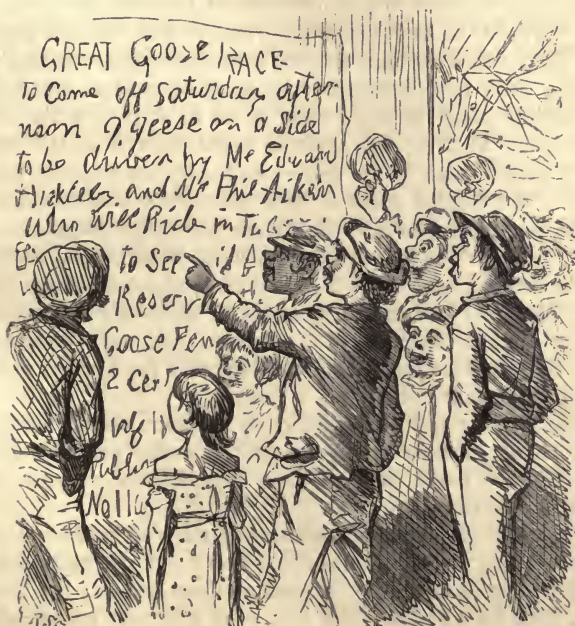 GREAT GOOSE RACE
To Come off Saturday after
noon 9 geese on a Side
to be driven by Mr Edward
and Mr Phil Aiken
who will Ride in
to See
Reserv
Goose Pen
2 Cen
Publi